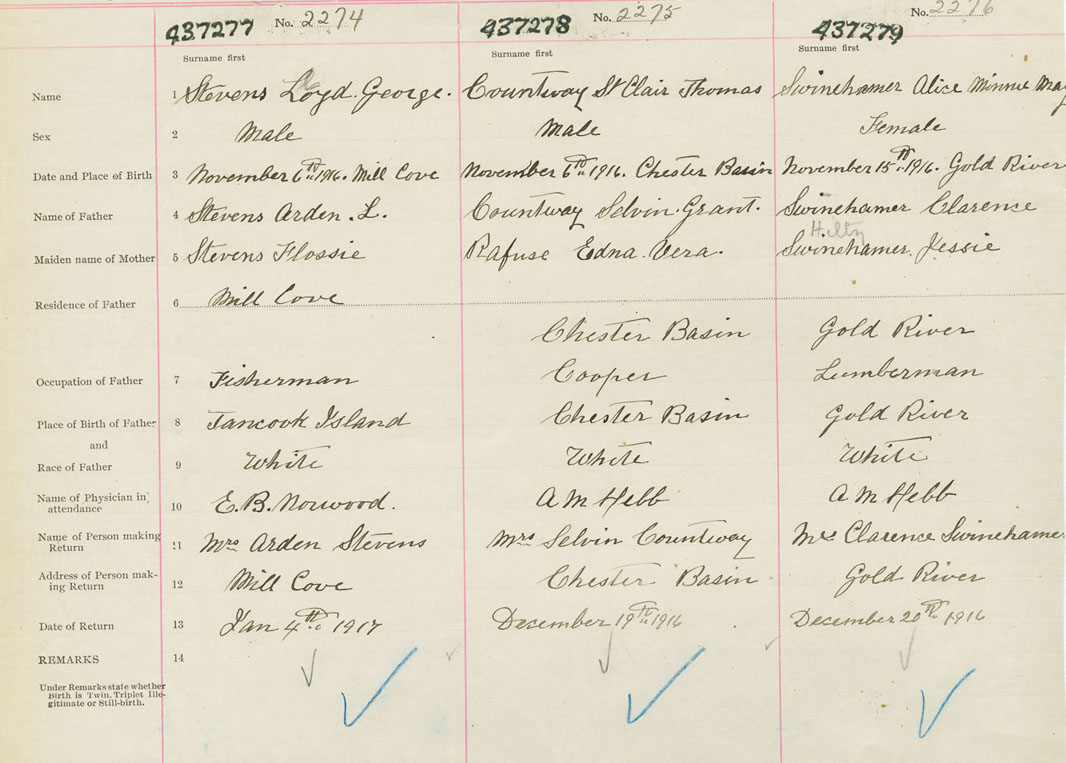 437277 No. 2274 437278 No. 2275 437279 No. 2276
Surname first Surname first Surname first
Name 1 Stevens Loyd. George. Countway St Clair Thomas Swinehamer Alice Minnie May
Sex 2 Male Male Female
Date and Place of Birth 3 November 6th 1916. Mill Cove November 6th 1916. Chester Basin November 15th 1916. Gold River
Name of Father 4 Stevens Arden. L. Countway Selvin. Grant. Swinehamer Clarence
Hilty
Maiden name of Mother 5 Stevens Flossie Rafuse Edna. Vera. Swinehamer. Jessie
Residence of Father 6 Mill Cove
Chester Basin Gold River
Occupation of Father 7 Fisherman Cooper Lumberman
Place of Birth of Father 8 Tancook Island Chester Basin Gold River
and
Race of Father 9 White White White
Name of Physician in attendance 10 E. B. Norwood. A M Hebb A M Hebb
Name of Person making Return 11 Mrs Arden Stevens Mrs Selvin Countway Mrs Clarence Swinehame
Address of Person mak-ing Return 12 Mill Cove Chester Basin. Gold River
Date of Return 13 Jan 4th 1917 December 19th 1916 December 20th 1916
REMARKS 14
Under Remarks state whether
Birth is Twin, Triplet Ille-
gitimate or Still-birth.